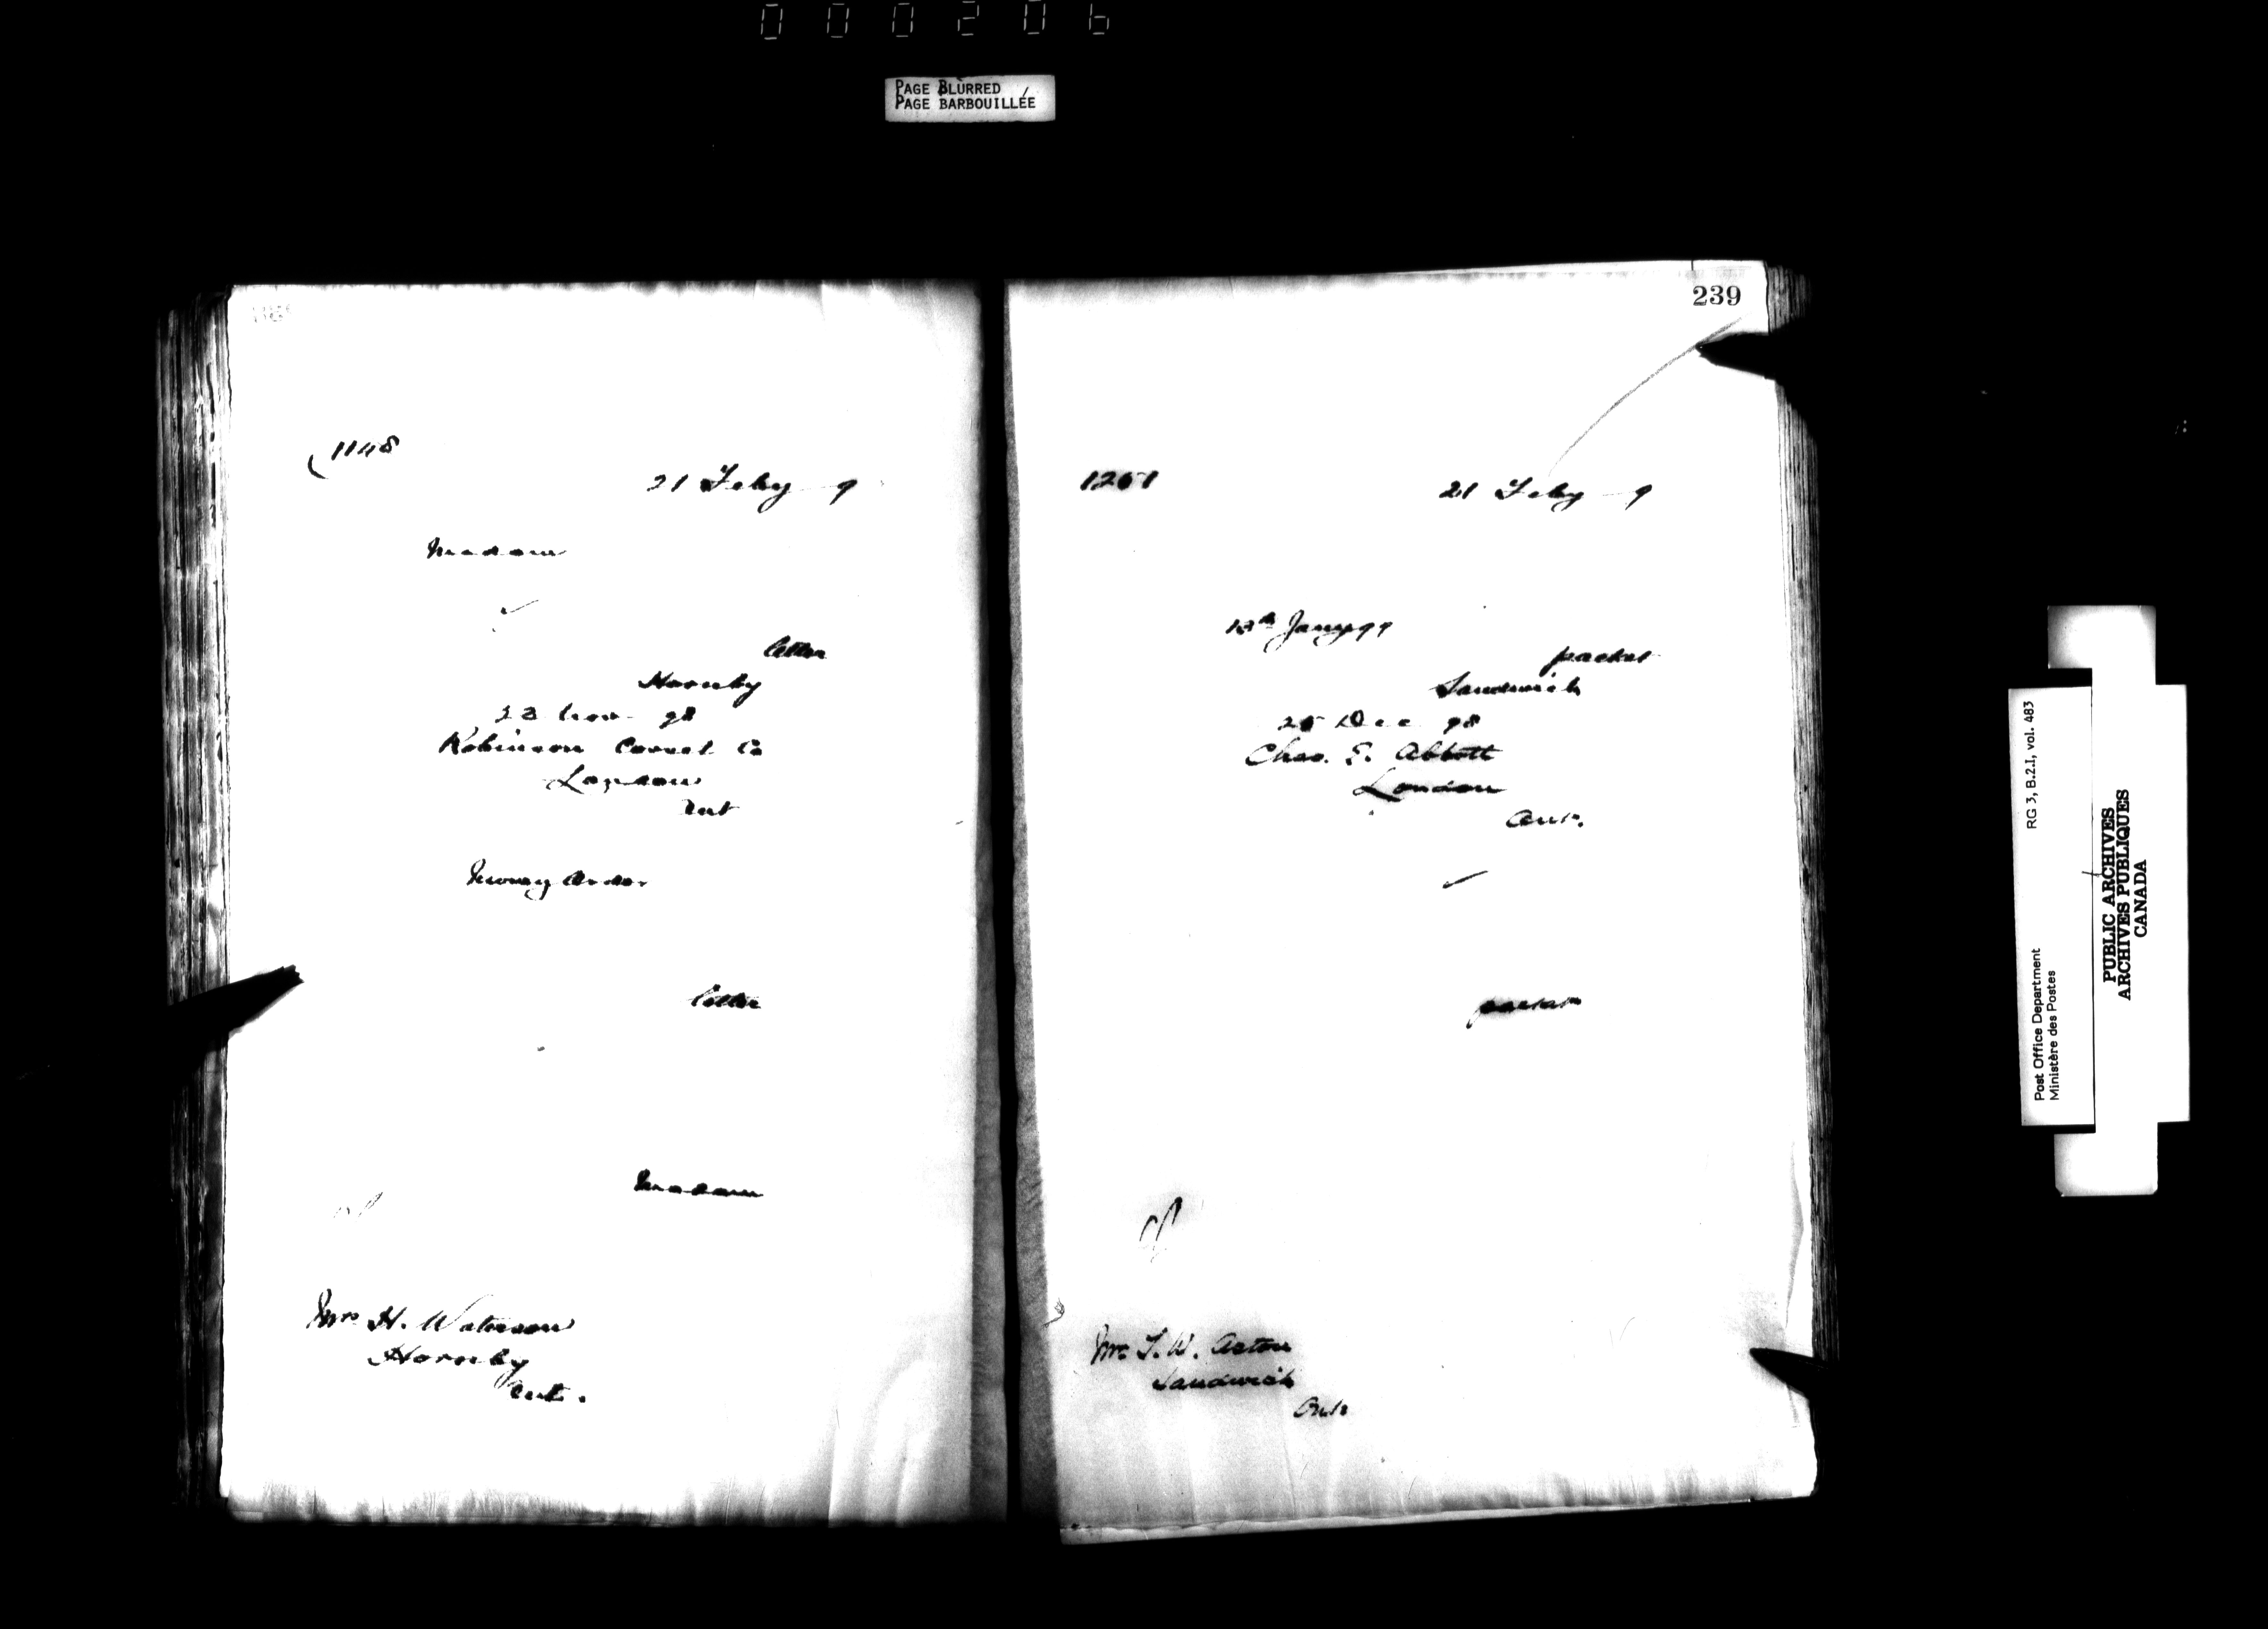 000206
PAGE BLURRED
PAGE BARBOUILLÉE
1148
21 Feby 9
Madam
letter
Hornby
23 Nov 98
Robinson Corset Co
London
Ont
Money Order
letter
Madam
Mrs H. Waterson
Hornby
Ont.
239
1251
21 Feby 9
13th Jany 99
packet
Sandwich
Dec 98
Chas. E. Abbott
London
Ont.
packet
Mr. T. W. Acton
Sandwich
Ont.
Post Office Department
Ministère des Postes
RG 3, B.2.I, vol. 483
PUBLIC ARCHIVES
ARCHIVES PUBLIQUES
CANADA